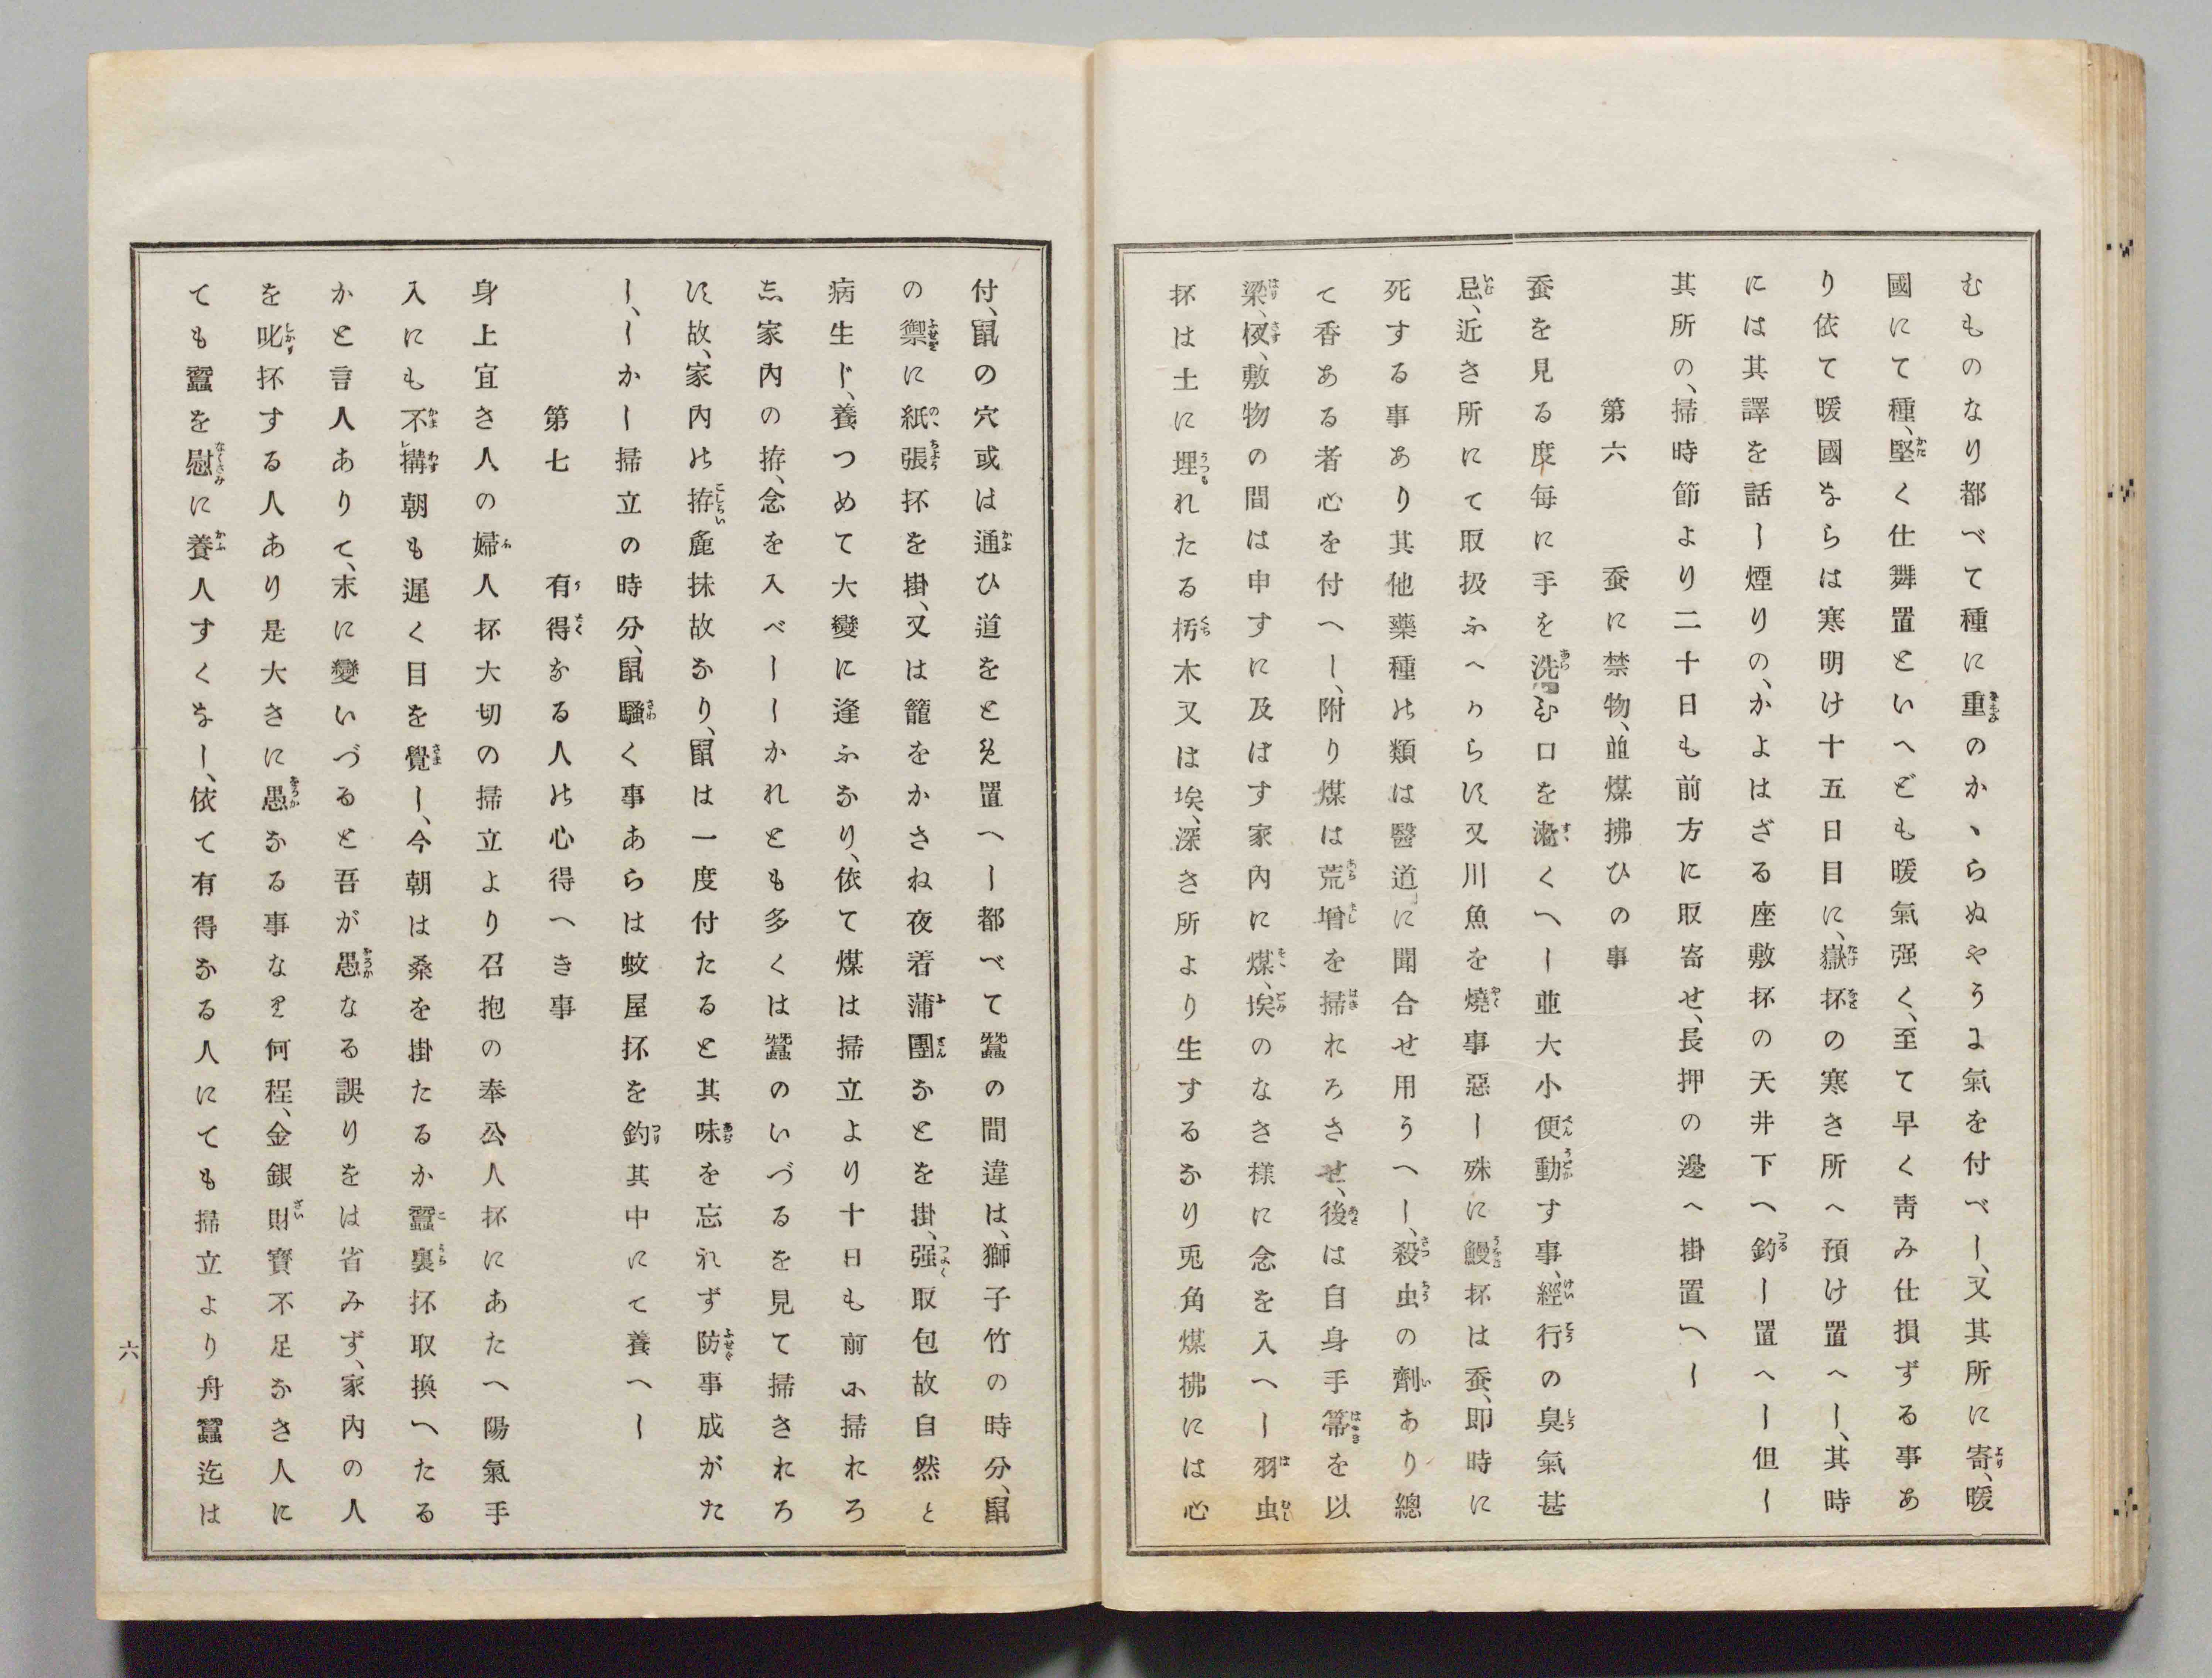 むものなり都べて種に重のかゝらぬやうに氣を付べし、又其所に寄、暖
國にて種、堅く仕舞置といへども暖氣强く、至て早く靑み仕損ずる事あ
り依て暖國ならは寒明け十五日目に、嶽抔の寒き所へ預け置へし、其時
には其譯を話し煙りの、かよはざる座敷抔の天井下へ釣し置へし但し
其所の、掃時節より二十日も前方に取寄せ、長押の邊へ掛置へし
第六　蚕に禁物、並煤拂ひの事
蚕を見る度每に手を洗ひ口を漱くへし並大小便動す事、經行の臭氣甚
忌、近き所にて取扱ふへからに又川魚を燒事惡し殊に鰻抔は蚕、即時に
死する事あり其他藥種の類は醫道に聞合せ用うへし、殺虫の劑あり總
て香ある者心を付へし、附り煤は荒增を掃れろさせ、後は自身手箒を以
梁、椏、敷物の間は申すに及はす家內に煤、埃のなき樣に念を入へし羽虫
抔は土に埋れたる朽木又は埃、深き所より生するなり兎角煤拂には心
付、鼠の穴或は通ひ道をとめ置へし都べて蠶の間違は、獅子竹の時分、鼠
の禦に紙張抔を掛、又は籠をかさね夜着蒲團なとを掛、强取包故自然と
病生じ、養つめて大變に逢ふなり、依て煤は掃立より十日も前に掃れろ
し家內の拵、念を入べししかれとも多くは蠶のいづるを見て掃されろ
に故、家內の拵麁抹故なり、鼠は一度付たると其味を忘れず防事成がた
し、しかし掃立の時分、鼠騷く事あらは蚊屋抔を釣其中にて養へし
第七　有得なる人の心得へき事
身上宜き人の婦人抔大切の掃立より召抱の奉公人抔にあたへ陽氣手
入にも不搆朝も遲く目を覺し、今朝は桑を掛たるか蠶裏抔取換へたる
かと言人ありて、末に變いづると吾が愚なる誤りをは省みず、家內の人
を叱抔する人あり是大きに愚なる事なり何程、金銀財寶不足なき人に
ても蠶を慰に養人すくなし、依て有得なる人にても掃立より舟蠶迄は
六